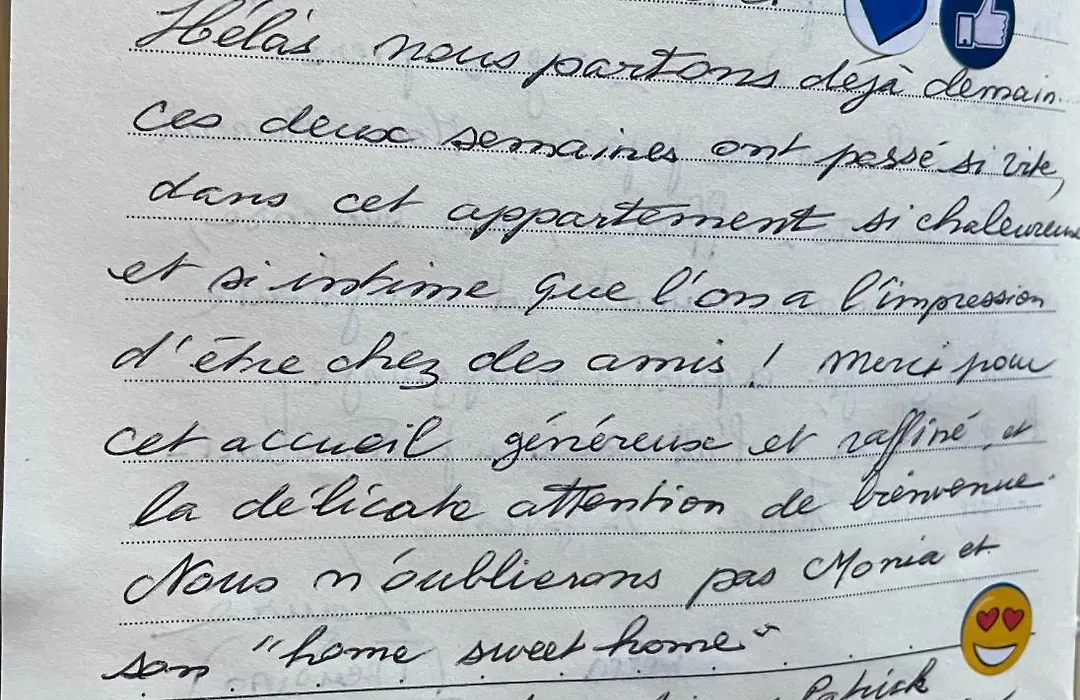 Hélas, nous partons déjà demain.
ces deux semaines ont passé si vite,
dans cet appartement si chaleureux
et si intime que l'on a l'impression
d'être chez des amis ! Merci pour
cet accueil généreux et raffiné, et
la délicate attention de bienvenue.
Nous n'oublierons pas Monia et
son "home sweet home"
Patrick